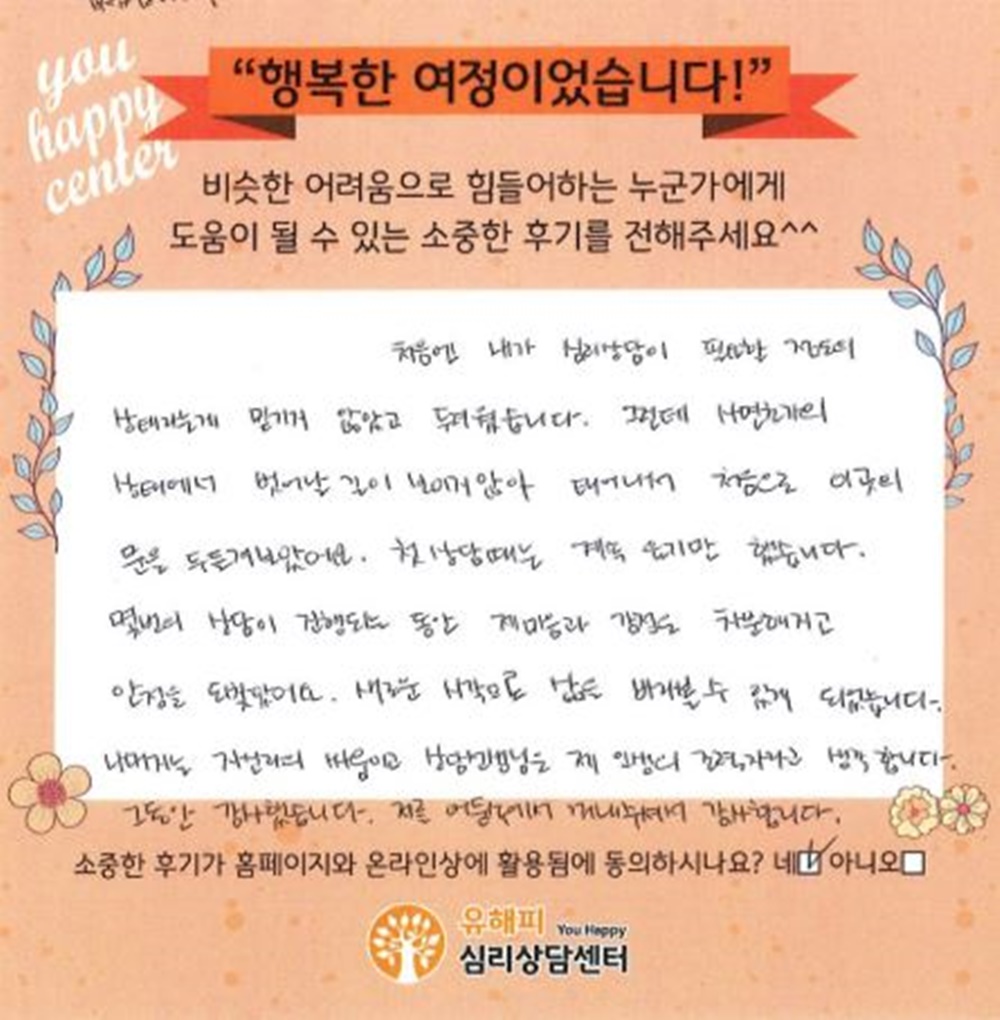 you
happy
center
“행복한 여정이었습니다!”
비슷한 어려움으로 힘들어하는 누군가에게
도움이 될 수 있는 소중한 후기를 전해주세요^^
처음엔 내가 심리상담이 필요한 정도의
상태라는게 믿기지 않았고 두려웠습니다. 그런데 사면초가의
상태에서 벗어날 길이 보이지 않아 태어나서 처음으로 이곳의
문을 두드려보았어요. 첫 상담때는 계속 울기만 했습니다.
몇번의 상담이 진행되는 동안 제 마음과 감정은 차분해지고
안정을 되찾았어요. 새로운 시각으로 삶을 바라볼 수 있게 되었습니다.
나머지는 자신과의 싸움이고 상담선생님은 제 인생의 조력자라고 생각합니다.
그동안 감사했습니다. 저를 어둠속에서 꺼내주셔서 감사합니다.
소중한 후기가 홈페이지와 온라인상에 활용됨에 동의하시나요? 네☑ 아니오☐
유해피 You Happy
심리상담센터